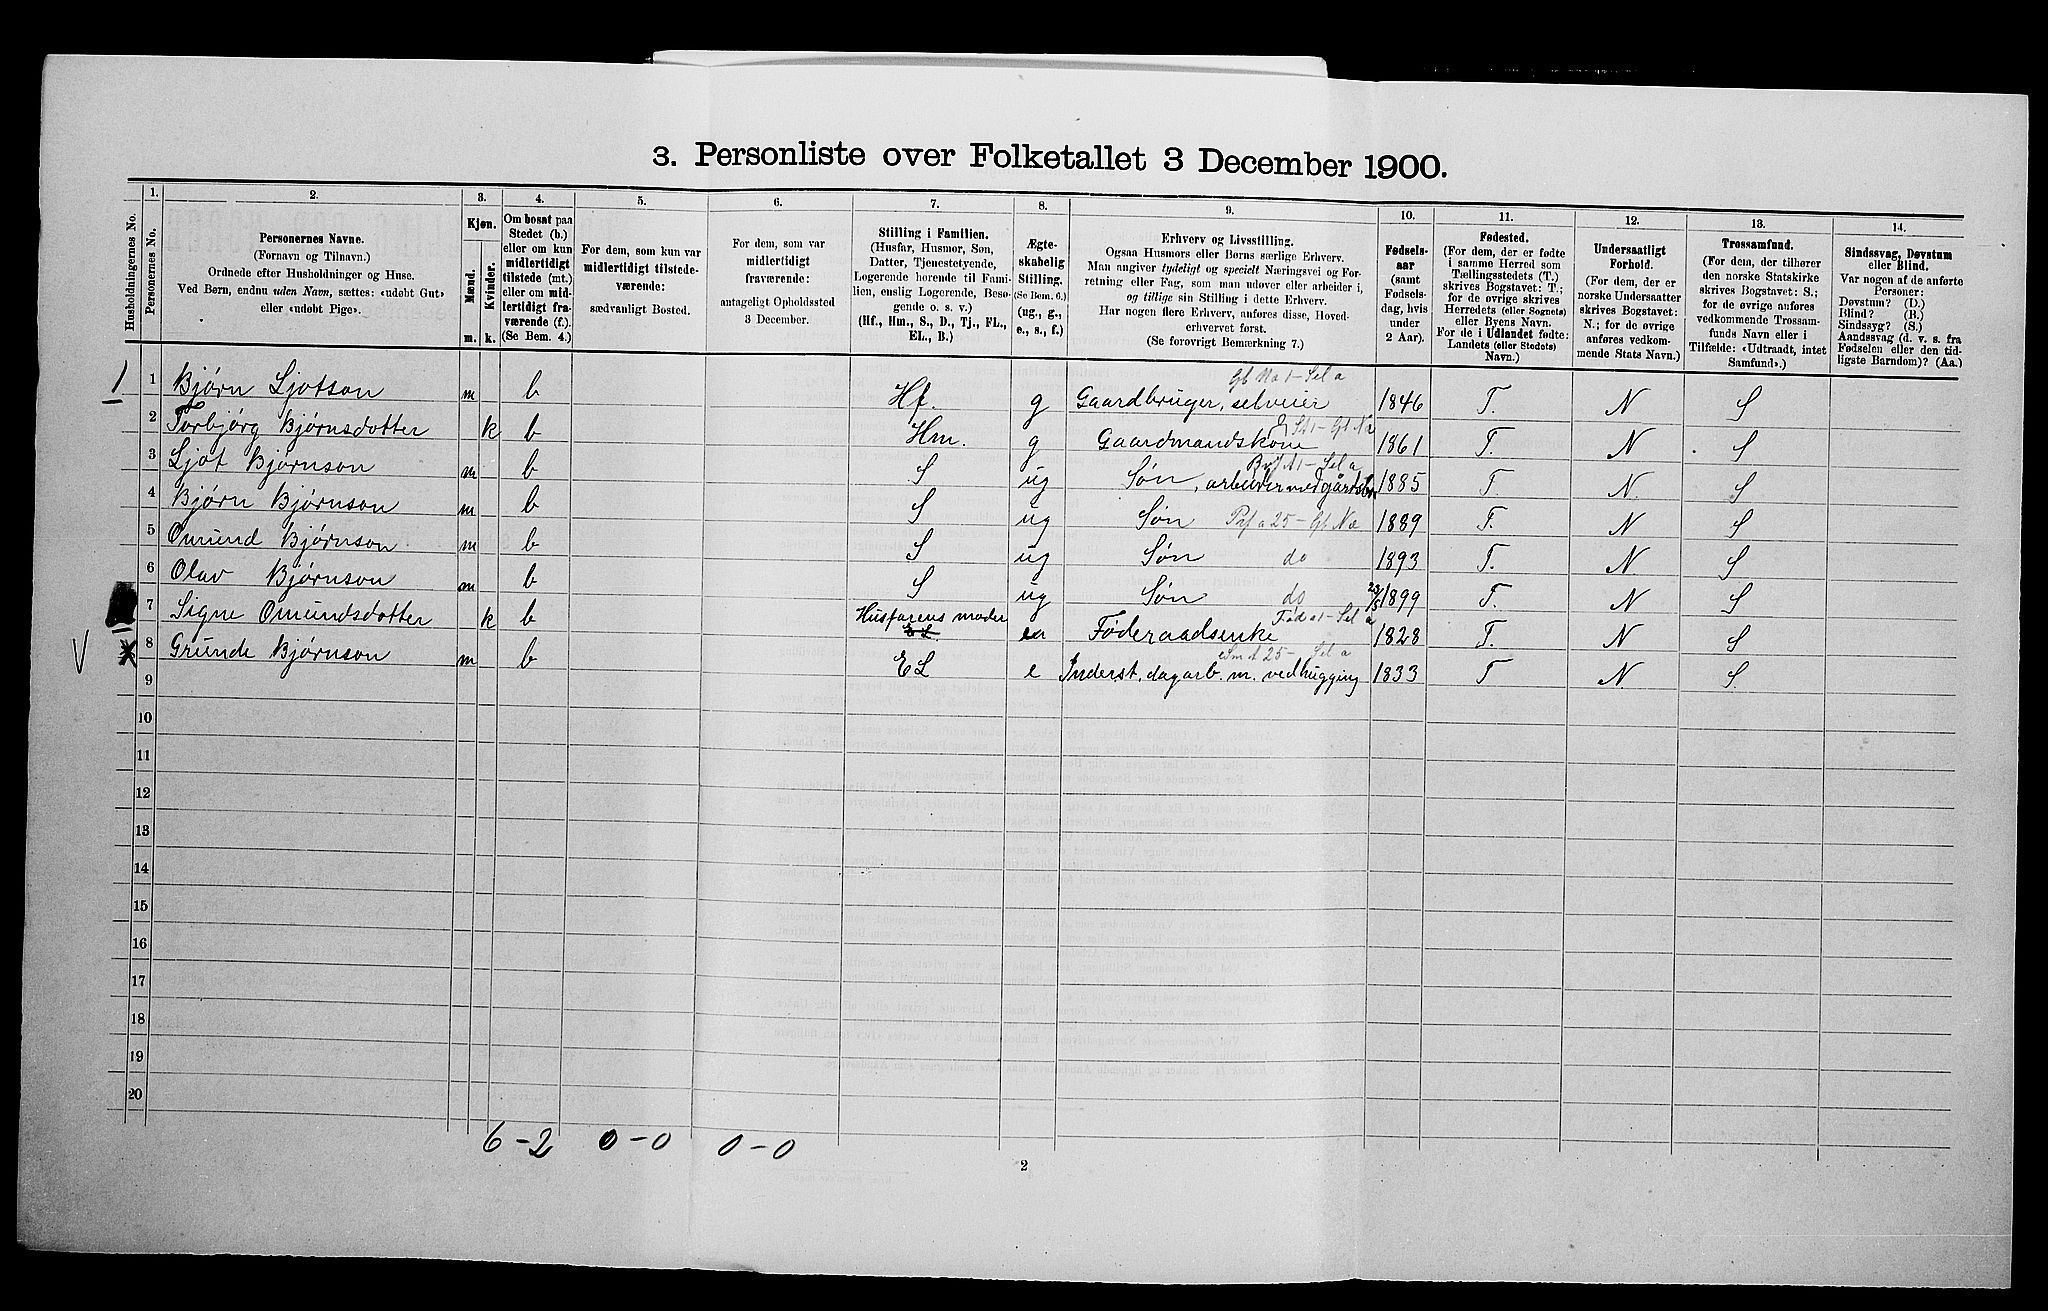 3. Personliste over Folketallet 3 December 1900.
Husholdningernes No.
1.
Personernes No.
2.
Personernes Navne.
(Fornavn og Tilnavn.)
Ordnede efter Husholdninger og Huse.
Ved Børn, endnu uden Navn, sættes: «udøbt Gut»
eller «udøbt Pige».
3.
Kjøn.
Mænd.
Kvinder.
m. k.
4.
Om bosat paa
Stedet (b.)
eller om kun
midlertidigt
tilstede (mt.)
eller om mid-
lertidigt fra-
værende (f.).
(Se Bem. 4.)
5.
For dem, som kun var
midlertidigt tilstede-
værende:
sædvanligt Bosted.
6.
For dem, som var
midlertidigt
fraværende:
antageligt Opholdssted
3 December.
7.
Stilling i Familien.
(Husfar, Husmor, Søn,
Datter, Tjenestetyende,
Logerende hørende til Fami-
lien, enslig Logerende, Besø-
gende o. s. v.)
(Hf., Hm., S., D., Tj., FL.,
EL., B.)
8.
Ægte-
skabelig
Stilling.
(Se Bem. 6.)
(ug., g.,
e., s., f.)
9.
Erhverv og Livsstilling.
Ogsaa Husmors eller Børns særlige Erhverv.
Man angiver tydeligt og specielt Næringsvei og For-
retning eller Fag, som man udøver eller arbeider i,
og tillige sin Stilling i dette Erhverv.
Har nogen flere Erhverv, anføres disse, Hoved-
erhvervet først.
(Se forøvrigt Bemærkning 7.)
10.
Fødsels-
aar
(samt
Fødsels-
dag, hvis
under
2 Aar).
11.
Fødested.
(For dem, der er fødte
i samme Herred som
Tællingsstedets (T.)
skrives Bogstavet: T.;
for de øvrige skrives
Herredets (eller Sognets)
eller Byens Navn.
For de i Udlandet fødte:
Landets (eller Stedets)
Navn.)
12.
Undersaatligt
Forhold.
(For dem, der er
norske Undersaatter
skrives Bogstavet:
N.; for de øvrige
anføres vedkom-
mende Stats Navn.)
13.
Trossamfund.
(For dem, der tilhører
den norske Statskirke
skrives Bogstavet: S.;
for de øvrige anføres
vedkommende Trossam-
funds Navn eller i
Tilfælde: «Udtraadt, intet
Samfund».)
14.
Sindssvag, Døvstum
eller Blind.
Var nogen af de anførte
Personer:
Døvstum? (D.)
Blind? (B.)
Sindssyg? (S.)
Aandssvag (d. v. s. fra
Fødselen eller den tid-
ligste Barndom)? (Aa.)
1 1 Bjørn Ljotson m b Hf. g Gaardbruger, selveier 1846 T. N S
2 Torbjørg Bjørnsdotter k b Hm. g Gaardmandskone 1861 T. N S
3 Ljot Bjørnson m b S ug Søn, 1885 T. N. S
4 Bjørn Bjørnson m b S ug Søn 1889 T. N S
5 Omund Bjørnson m b S ug Søn do 1893 T. N S
6 Olav Bjørnson m b S ug Søn do 23/5 1899 T. N S
7 Signe Omundsdotter k b Husfarens moder E L Føderaadsenke 1828 T. N S
V 8 Grunde Bjørnson m b EL e Inderst, dagarb. m. vedhugging 1833 T N. S.
9
10
11
12
13
14
15
16
17
18
19
20
6-2 0-0 0-0
2